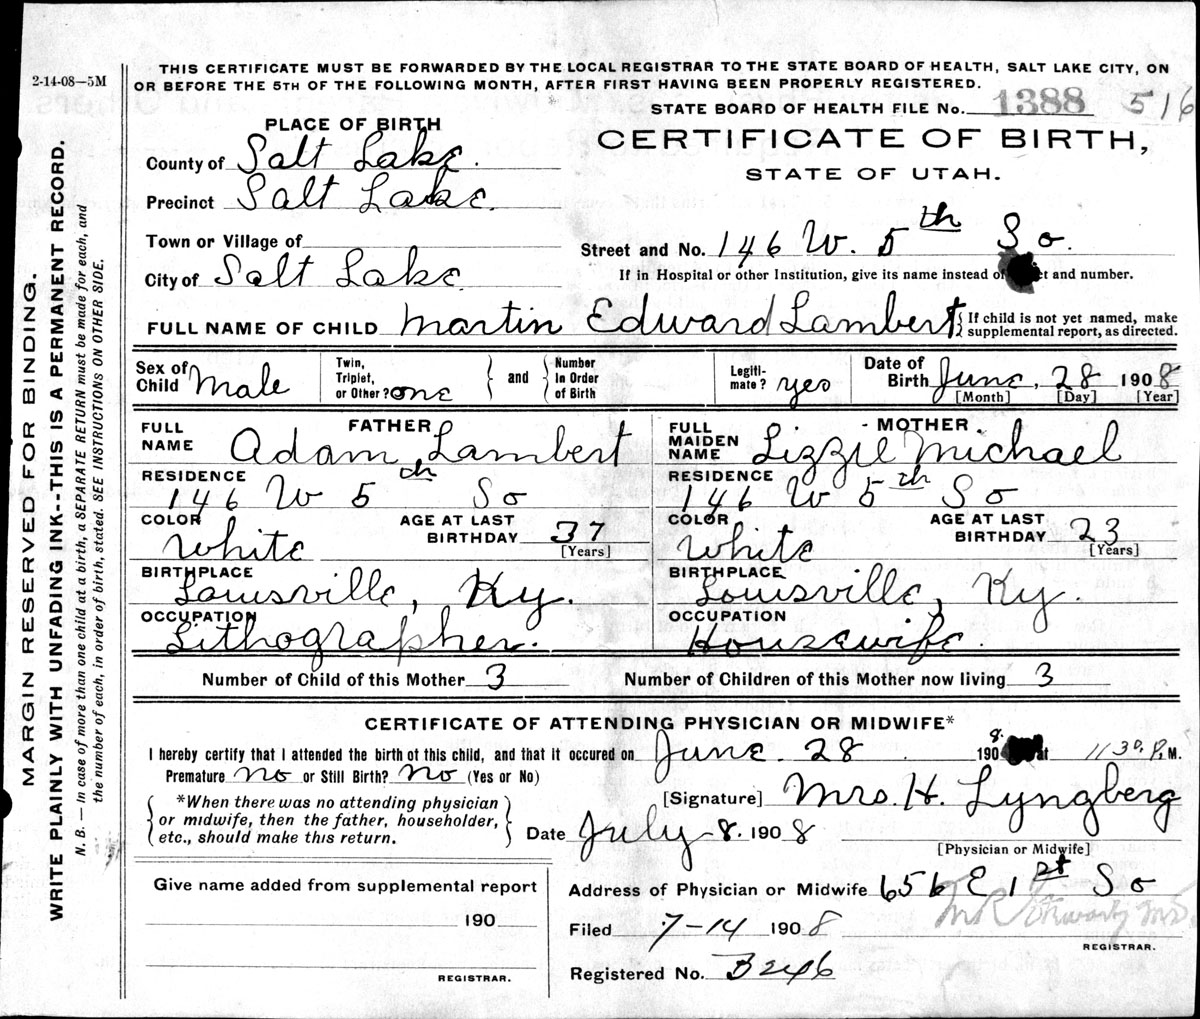 2-14-08—5M
THIS CERTIFICATE MUST BE FORWARDED BY THE LOCAL REGISTRAR TO THE STATE BOARD OF HEALTH, SALT LAKE CITY, ON
OR BEFORE THE 5TH OF THE FOLLOWING MONTH, AFTER FIRST HAVING BEEN PROPERLY REGISTERED.
STATE BOARD OF HEALTH FILE No. 1388 516
PLACE OF BIRTH
CERTIFICATE OF BIRTH,
STATE OF UTAH.
County of Salt Lake.
Precinct Salt Lake.
Town or Village of
Street and No. 146 W. 5th So.
City of Salt Lake.
If in Hospital or other Institution, give its name instead of et and number.
FULL NAME OF CHILD Martin Edward Lambert { If child is not yet named, make
supplemental report, as directed.
Sex of Child Male
Twin, Triplet, or Other? one } and { Number In Order of Birth
Legiti-mate? yes
Date of Birth June, 28 1908
[Month] [Day] [Year]
FATHER
FULL NAME Adam Lambert
RESIDENCE
146 W 5th So
COLOR White
AGE AT LAST BIRTHDAY 37
[Years]
BIRTHPLACE
Louisville, Ky.
OCCUPATION
Lithographer.
MOTHER
FULL MAIDEN NAME Lizzie Michael
RESIDENCE
146 W 5th So
COLOR White
AGE AT LAST BIRTHDAY 23
[Years]
BIRTHPLACE
Louisville, Ky.
OCCUPATION
Housewife.
Number of Child of this Mother 3 Number of Children of this Mother now living 3
CERTIFICATE OF ATTENDING PHYSICIAN OR MIDWIFE*
I hereby certify that I attended the birth of this child, and that it occured on June. 28 1908 at 1130 P. M.
Premature No or Still Birth? No (Yes or No)
{ *When there was no attending physician
or midwife, then the father, householder,
etc., should make this return. }
[Signature] Mrs. H. Lyngberg
Date July 8. 1908
[Physician or Midwife]
Give name added from supplemental report
190
REGISTRAR.
Address of Physician or Midwife 656 E 1st So
Filed 7-14 1908
REGISTRAR.
Registered No. B246
MARGIN RESERVED FOR BINDING.
WRITE PLAINLY WITH UNFADING INK--THIS IS A PERMANENT RECORD.
N. B. — In case of more than one child at a birth, a SEPARATE RETURN must be made for each, and
the number of each, in order of birth, stated. SEE INSTRUCTIONS ON OTHER SIDE.